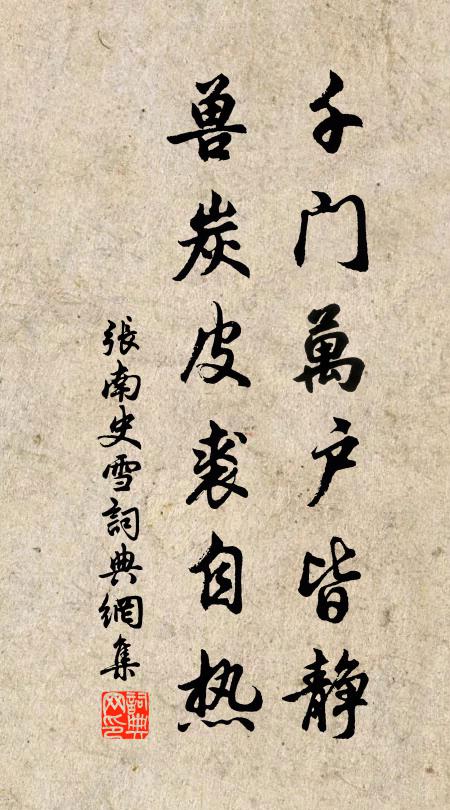 千门萬户皆静
兽炭皮裘自热
張南史雪詞典網集
詞典网印